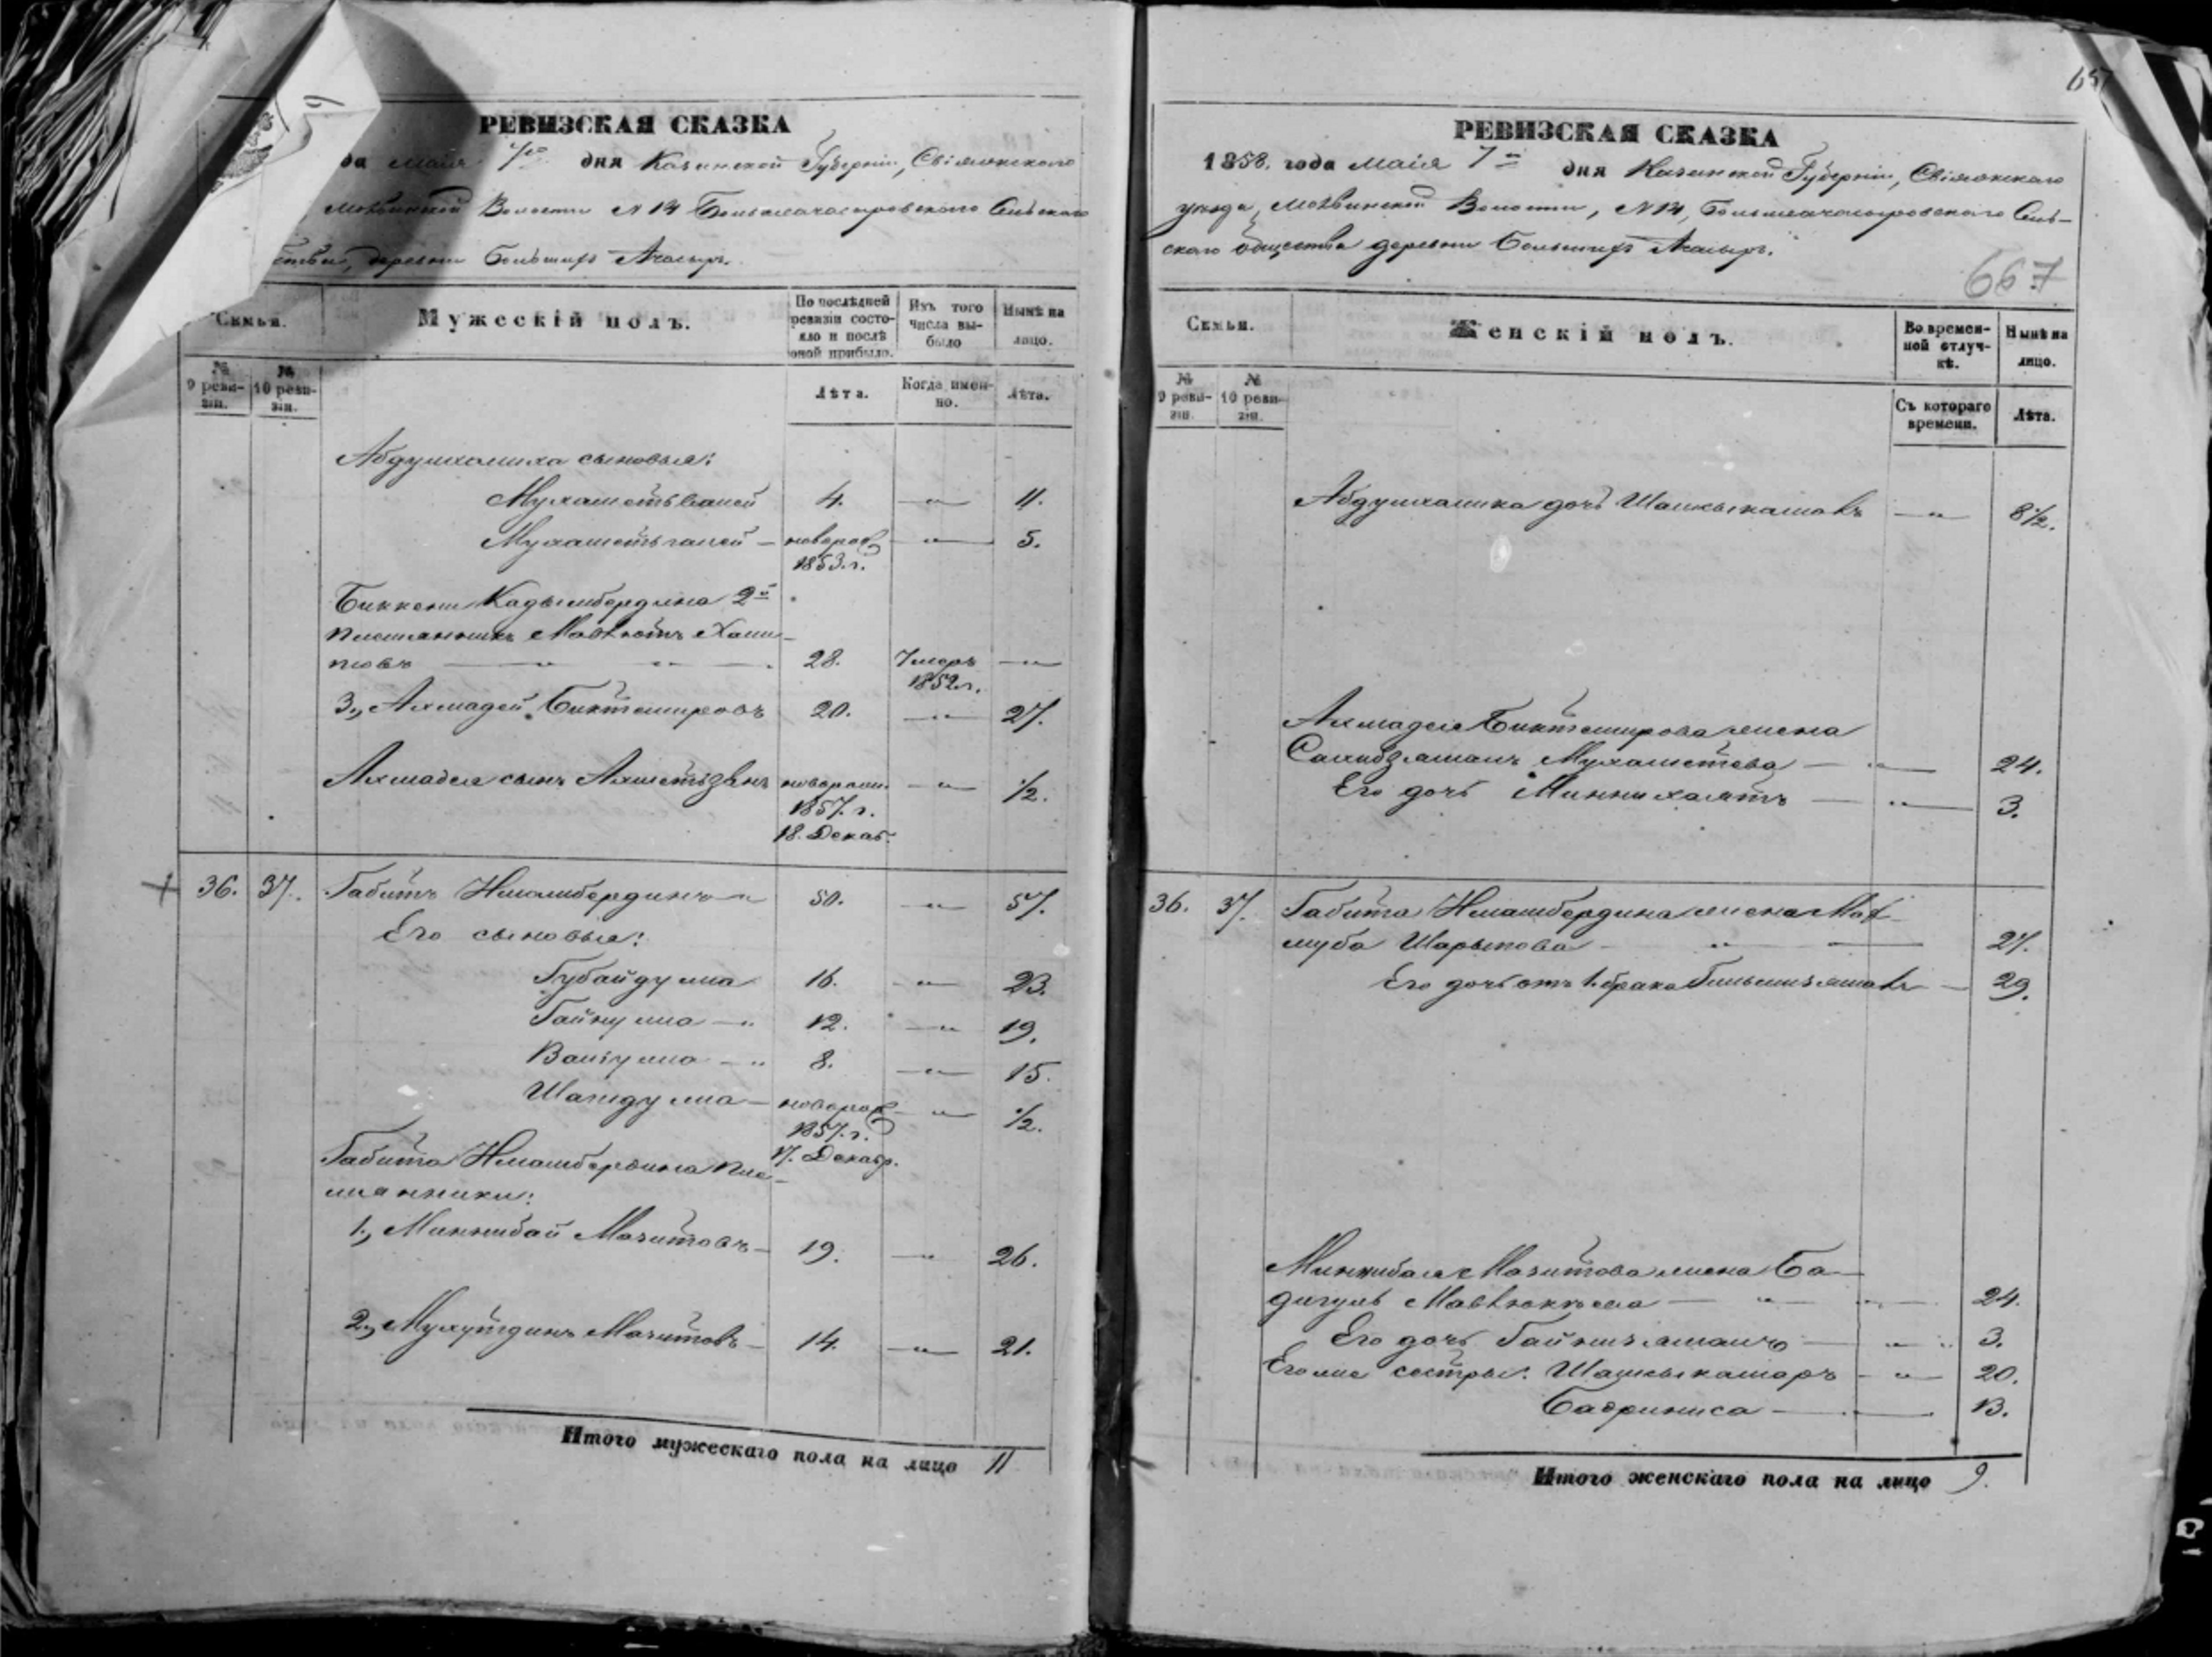 РЕВИЗСКАЯ СКАЗКА
да маія 7го дня Казанской Губерніи, Свіяжскаго
Волости N 14 Большеачасыровскаго Сельскаго
деревни Большихъ Ачасыръ.
Семьи.
Мужескій полъ.
По послѣдней ревизіи состояло и послѣ оной прибыло.
Изъ того числа выбыло
Нынѣ на лицо.
№ 9 ревизіи.
№ 10 ревизіи.
Лѣта.
Когда именно.
Лѣта.
Абдулхалика сыновья:
Мухаметьвалей 4. — 11.
Мухаметьгалей — новорож 1853. г. — 5.
Биккени Кадырмбердина 2й
племянникъ Мавлютъ Хали-
ловъ 28. Умеръ 1852 г. —
3., Ахмадей Биктемировъ 20. — 27.
Ахмадея сынъ Ахметьзянъ новорожд. 1857. г. 18. Декаб. — 1/2.
36. 37. Габитъ Ишмбердинъ 50. — 57.
Его сыновья:
Губайдулла 16. — 23.
Гайнулла — 12. — 19.
Валиулла — 8. — 15.
Шагидулла — новорож 1857. г. 17. Декабр. — 1/2.
Габита племянники:
1., Миннибай Мазитовъ — 19. — 26.
2., Мухутдинъ Мазитовъ — 14. — 21.
Итого мужескаго пола на лицо 11
657
РЕВИЗСКАЯ СКАЗКА
1858. года маія 7го дня Казанской Губерніи, Свіяжскаго
уѣзда, Волости, N 14, Большеачасыровскаго Сель-
скаго общества деревни Большихъ Ачасыръ.
667
Семьи.
Женскій полъ.
Во временной отлучкѣ.
Нынѣ на лицо.
№ 9 ревизіи.
№ 10 ревизіи.
Съ котораго времени.
Лѣта.
Абдулхалика дочь — 8 1/2.
Ахмадея Биктемирова жена
Сахибзямалъ Мухаметева — 24.
Его дочь Миннихаятъ — 3.
36. 37. Габита жена Мах-
луба Шарыпова — 27.
Его дочь отъ 1. брака — 29.
Миннибая Мазитова жена Ба-
дигуль — 24.
Его дочь Гайнизямалъ — 3.
Его же сестры: Шамсыкамаръ — 20.
Бадриниса — 13.
Итого женскаго пола на лицо 9.